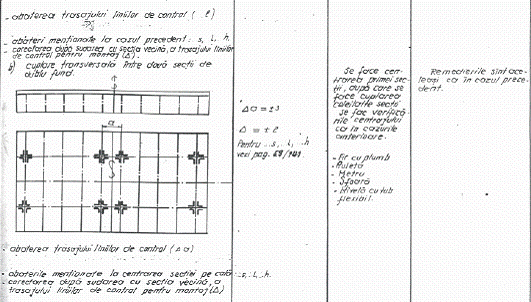 - abaterea trasajului liniilor de control ( ℓ )
- abateri menționate la cazul precedent: s, L, h.
- corectarea după sudarea cu secția vecină, a trasajului liniilor
de control pentru montaj (Δ).
b) cuplare transversală între două secții de
dublu fund.
a
- abaterea trasajului liniilor de control (Δa)
- abaterile menționate la centrarea secției pe cală: s, L, h.
- corectarea după sudarea cu secția vecină, a
trasajului liniilor de control pentru montaj (Δ)
Δa = ±3
Δ = ± 2
Pentru s, L, h
vezi pag.
Se face cen-
trarea primei sec-
ții, după care se
face cuplarea
celeilalte secții
Se fac verifică-
rile centrajului
ca în cazurile
anterioare.
- Fir cu plumb
- Ruletă
- Metru
- Sfoară
- Nivelă cu tub
flexibil.
Remedierile sînt ace-
leași ca în cazul prece-
dent.